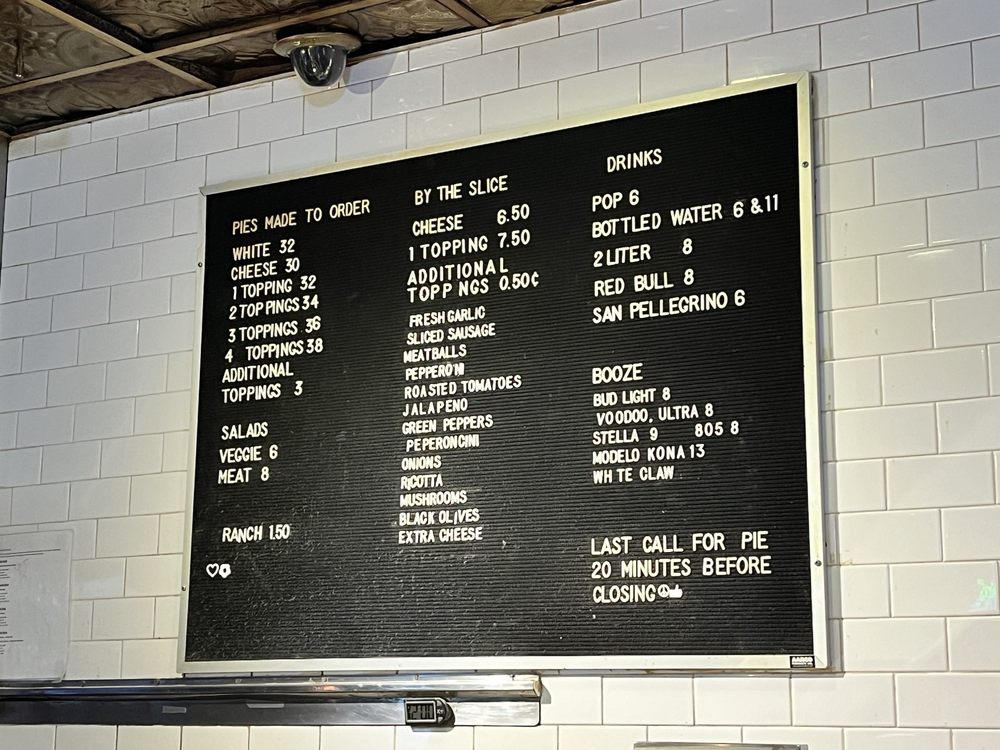 PIES MADE TO ORDER
WHITE 32
CHEESE 30
1 TOPPING 32
2 TOPPINGS 34
3 TOPPINGS 36
4 TOPPINGS 38
ADDITIONAL
TOPPINGS 3
SALADS
VEGGIE 6
MEAT 8
RANCH 1.50
BY THE SLICE
CHEESE 6.50
1 TOPPING 7.50
ADDITIONAL
TOPP NGS 0.50¢
FRESH GARLIC
SLICED SAUSAGE
MEATBALLS
PEPPERONI
ROASTED TOMATOES
JALAPENO
GREEN PEPPERS
PEPERONCINI
ONIONS
RICOTTA
MUSHROOMS
BLACK OLIVES
EXTRA CHEESE
DRINKS
POP 6
BOTTLED WATER 6 &11
2 LITER 8
RED BULL 8
SAN PELLEGRINO 6
BOOZE
BUD LIGHT 8
VOODOO, ULTRA 8
STELLA 9 805 8
MODELO KONA 13
WH TE CLAW
LAST CALL FOR PIE
20 MINUTES BEFORE
CLOSING
AARCO